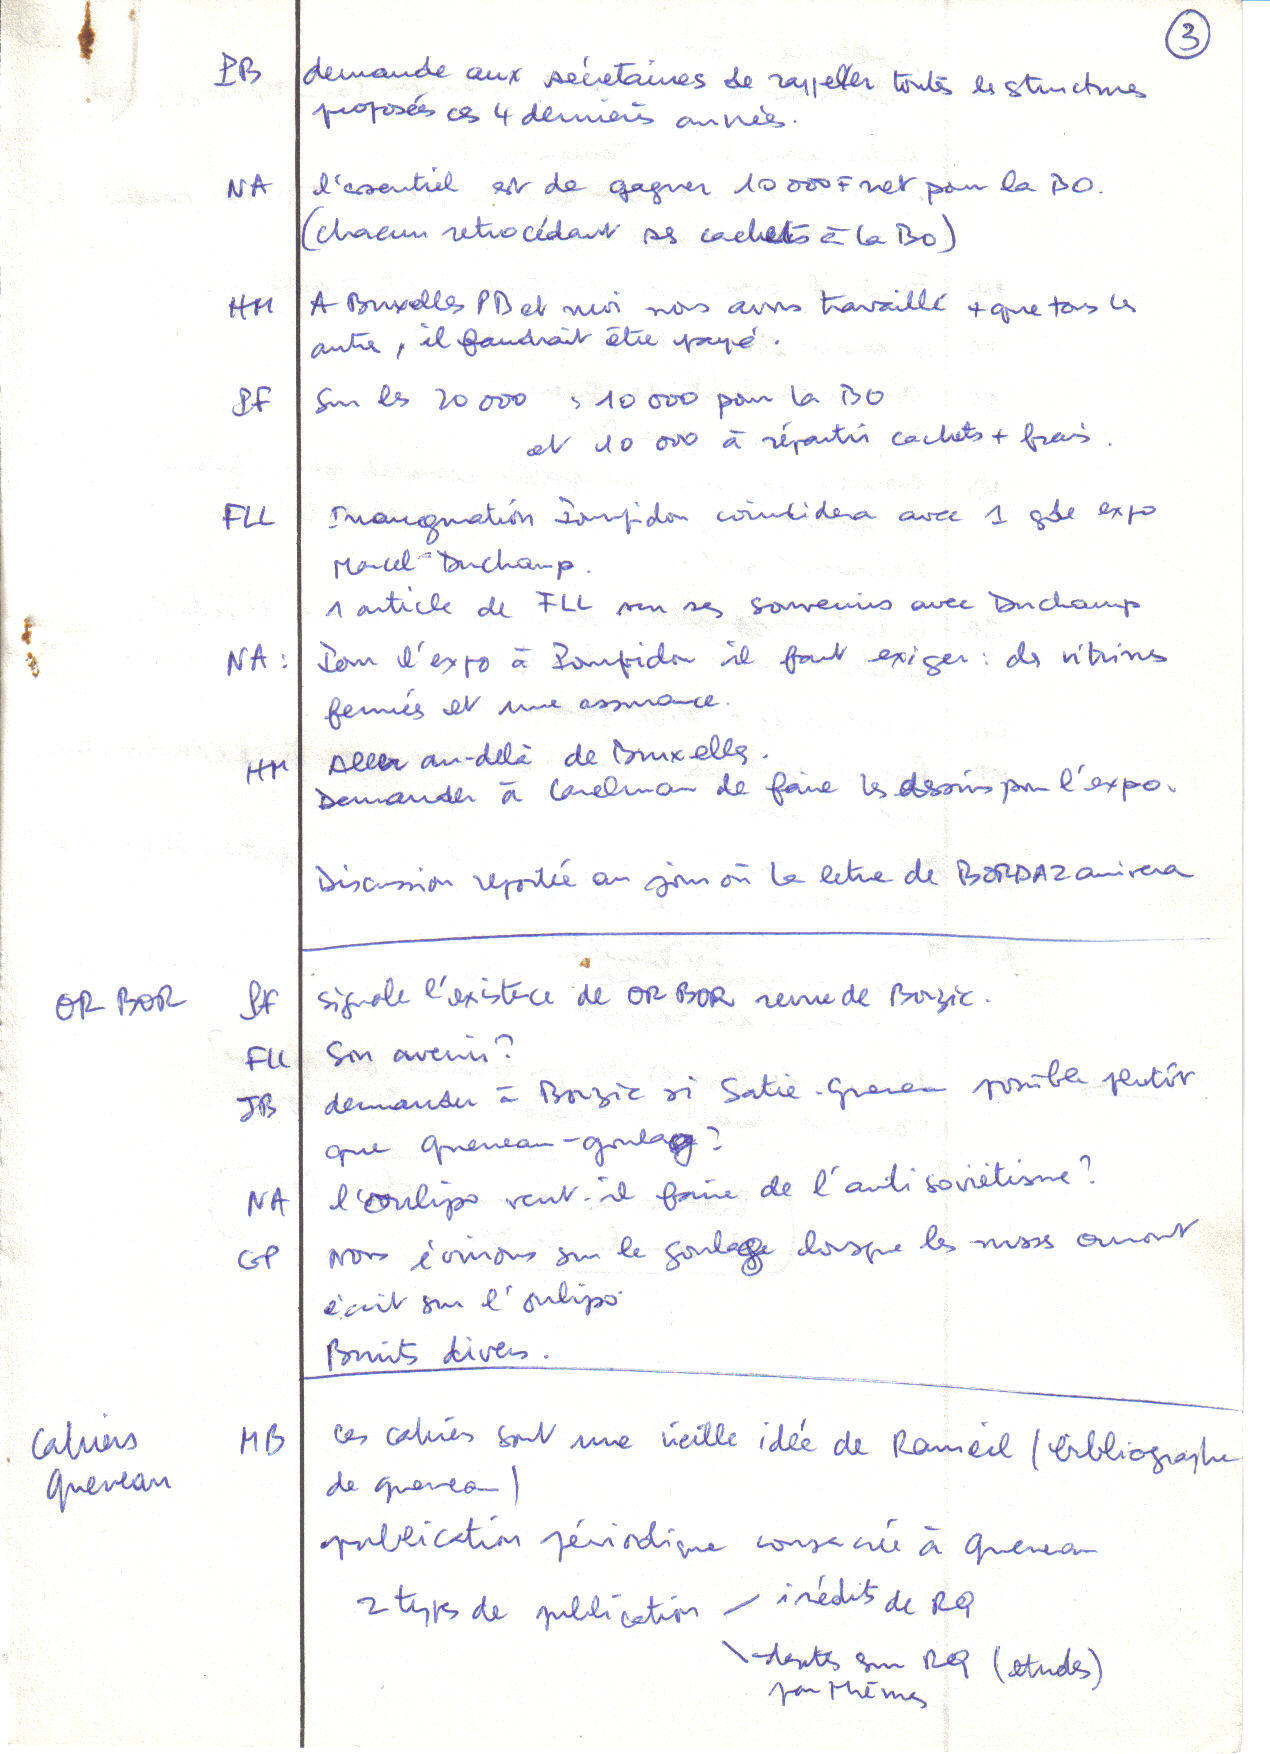 3
PB demande aux secrétaires de rappeler toutes les structures
proposées ces 4 dernières années.
NA l'essentiel est de gagner 10 000 F net pour la BO.
(chacun retrocédant ses cachets à la BO)
HM A Bruxelles PB et moi nous avons travaillé + que tous les
autres, il faudrait être payé.
PF Sur les 20 000, 10 000 pour la BO
et 10 000 à répartir cachets + frais.
FLL Inauguration Pompidou coincidera avec 1 gde expo
Marcel-Duchamp.
1 article de FLL sur ses souvenirs avec Duchamp
NA : Pour l'expo à Pompidou il faut exiger : des vitrines
fermées et une assurance.
HM Aller au-delà de Bruxelles.
Demander à Carelman de faire les dessins pour l'expo.
Discussion reportée au jour où la lettre de BORDAZ arrivera
OR BOR PF signale l'existence de OR BOR revue de Borzic.
FLL Son avenir ?
JB demander à Borzic si Satie-Queneau possible plutôt
que Queneau-goulag ?
NA l'oulipo veut-il faire de l'anti soviétisme ?
GP Nous écrirons sur le goulag lorsque les russes auront
écrit sur l'oulipo
Bruits divers.
Cahiers MB ces cahiers sont une vieille idée de Rameil (bibliographe
Queneau de Queneau)
publication périodique consacrée à Queneau
2 types de publication / inédits de RQ
\ textes sur RQ (études)
par thèmes